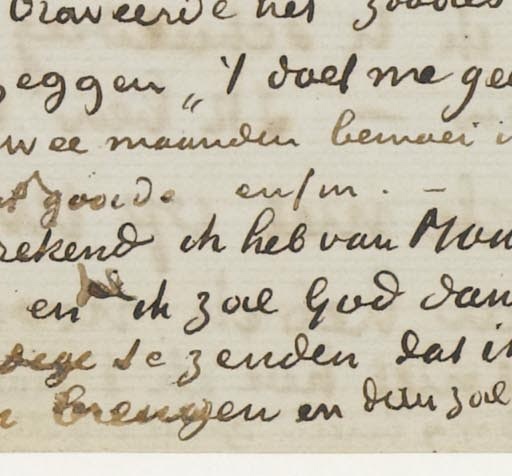 braveerde het zoodes
zeggen „'t doet me gee
twee maanden bemoei i
goeide enfin. –
rekend ik heb van Mou
en ik zal God dan
dige te zenden dat i
brengen en dan zal